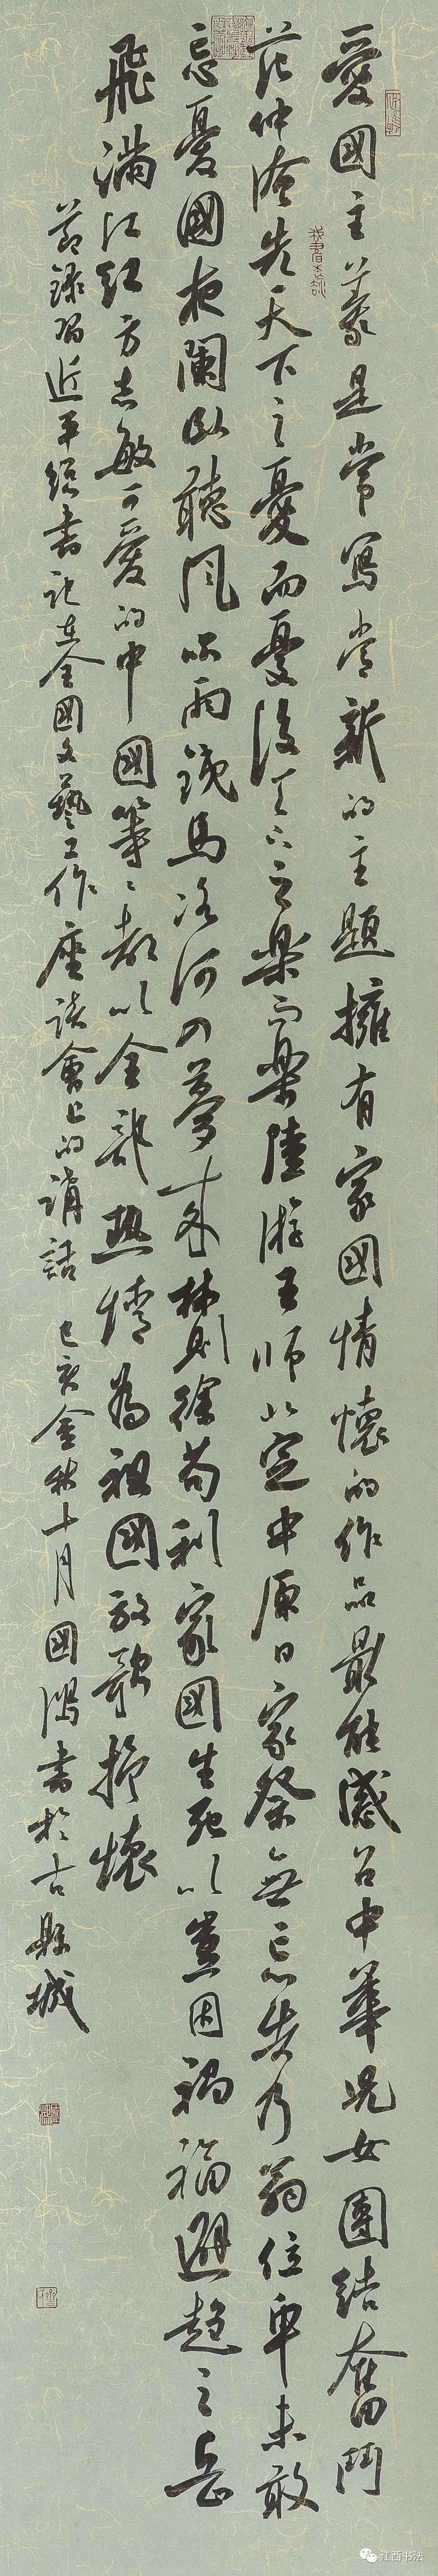 愛國主義是常寫常新的主題擁有家國情懷的作品最能感召中華兒女團結奮鬥
范仲淹先天下之憂而憂後天下之樂而樂陸游王師北定中原日家祭無忘告乃翁位卑未敢
忘憂國夜闌臥聽風吹雨鐵馬冰河入夢來林則徐苟利家國生死以豈因禍福避趨之岳
飛滿江紅方志敏可愛的中國等々都以全部熱情為祖國放歌抒懷
節錄習近平總書記在全國文藝工作座談會上的講話 己亥金秋十月國鴻書於古縣城
江西书法